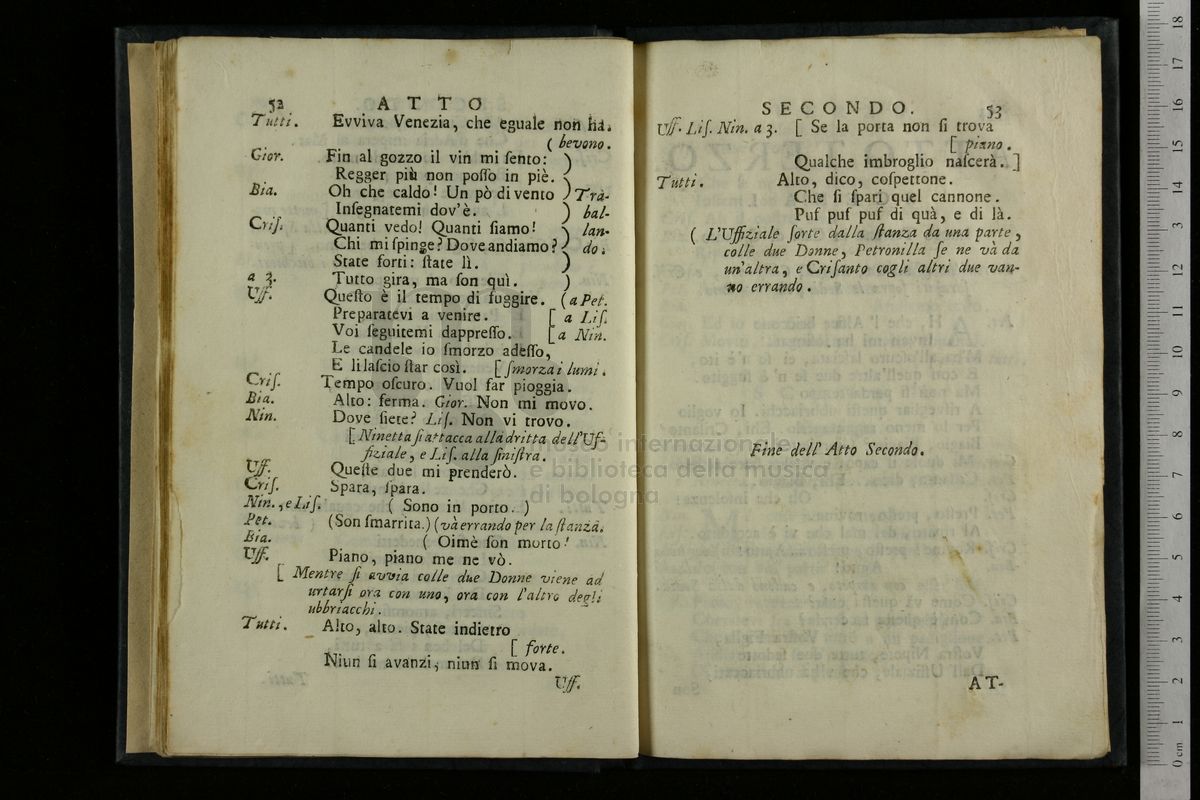 52 ATTO
Tutti. Evviva Venezia, che eguale non hà.
( bevono.
Gior. Fin al gozzo il vin mi ſento: )
Regger più non poſſo in piè. )
Bia. Oh che caldo! Un pò di vento ) Tra-
Inſegnatemi dov'è. ) bal-
Criſ. Quanti vedo! Quanti ſiamo! ) lan-
Chi mi ſpinge? Dove andiamo? ) do.
State forti: ſtate lì. )
a 3. Tutto gira, ma ſon quì. )
Uff. Queſto è il tempo di fuggire. (a Pet.
Preparatevi a venire. [ a Liſ.
Voi ſeguitemi dappreſſo. [a Nin.
Le candele io ſmorzo adeſſo,
E li laſcio ſtar così. [ ſmorza i lumi.
Criſ. Tempo oſcuro. Vuol far pioggia.
Bia. Alto: ferma. Gior. Non mi movo.
Nin. Dove ſiete? Liſ. Non vi trovo.
[ Ninetta ſi attacca alla dritta dell'Uf-
fiziale, e Liſ. alla ſiniſtra.
Uff. Queſte due mi prenderò.
Criſ. Spara, ſpara.
Nin., e Liſ. ( Sono in porto. )
Pet. (Son ſmarrita.) (và errando per la ſtanza.
Bia. ( Oimè ſon morto!
Uff. Piano, piano me ne vò.
[ Mentre ſi avvia colle due Donne viene ad
urtarſi ora con uno, ora con l'altro degli
ubbriacchi.
Tutti. Alto, alto. State indietro
[ forte.
Niun ſi avanzi, niun ſi mova.
Uff.
SECONDO. 53
Uff. Liſ. Nin. a 3. [ Se la porta non ſi trova
[ piano.
Qualche imbroglio naſcerà. ]
Tutti. Alto, dico, coſpettone.
Che ſi ſpari quel cannone.
Puf puf puf di quà, e di là.
( L'Uffiziale ſorte dalla ſtanza da una parte,
colle due Donne, Petronilla ſe ne và da
un'altra, e Criſanto cogli altri due van-
no errando.
Fine dell' Atto Secondo.
AT-
museo internazionale
e biblioteca della musica
di bologna
0 cm 1 2 3 4 5 6 7 8 9 10 11 12 13 14 15 16 17 18